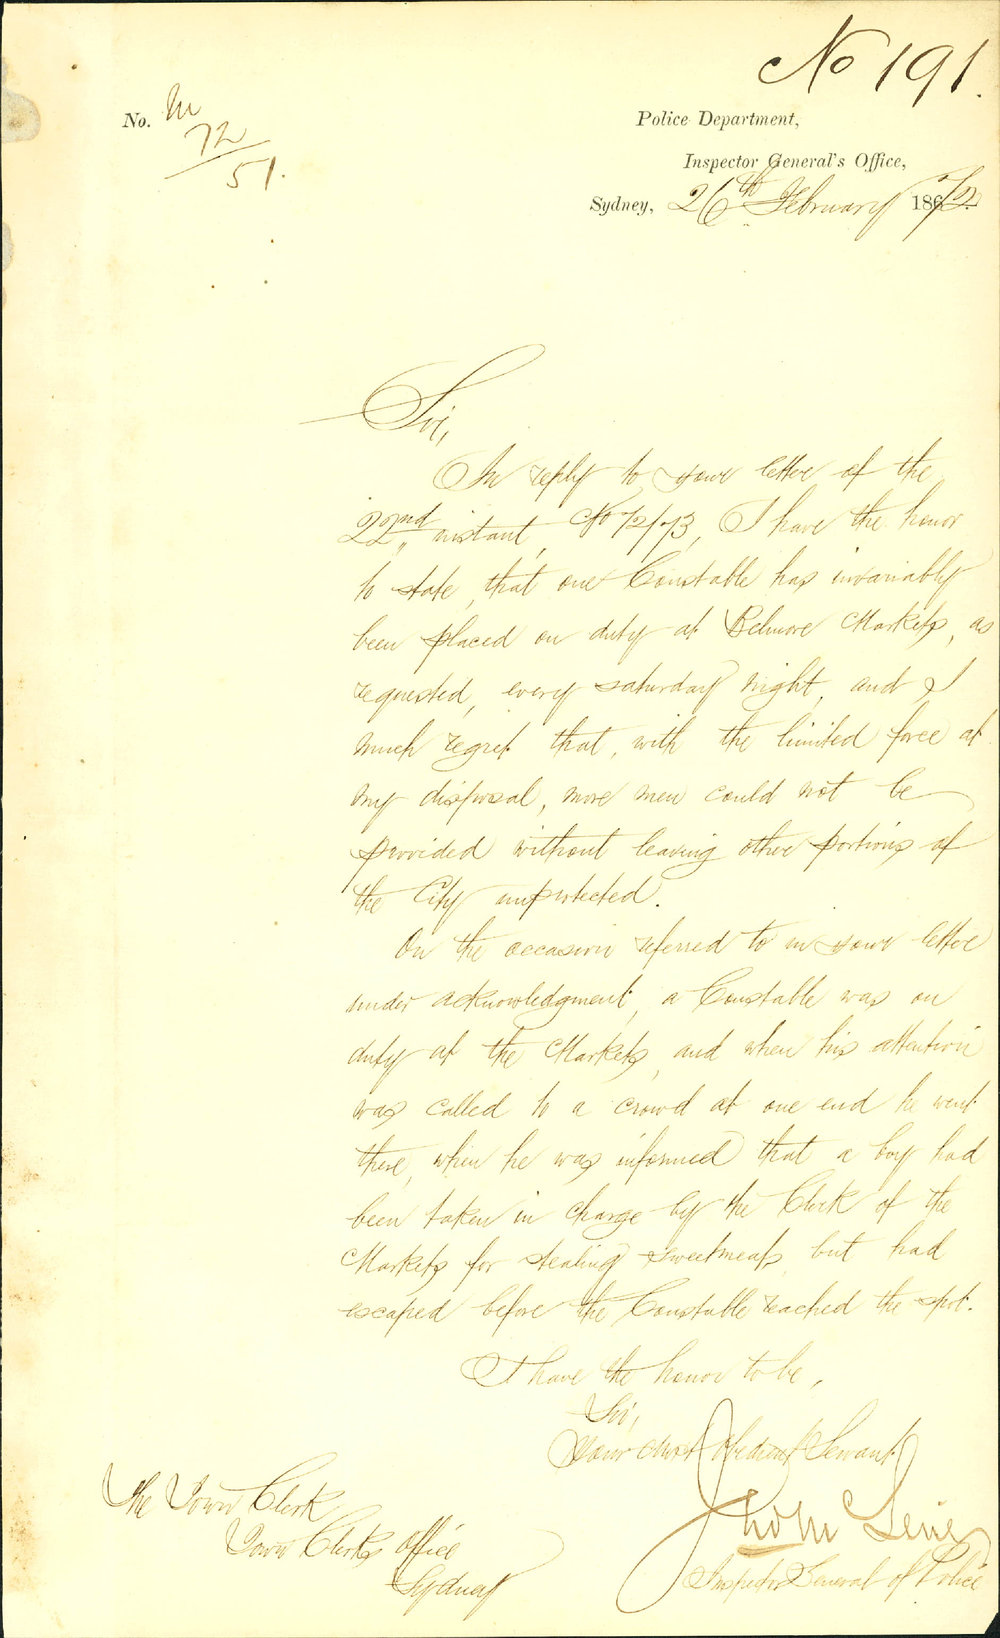 No 191.
No. M
72
51.
Police Department,
Inspector General's Office,
Sydney, 26th February 1872
Sir,
In reply to your letter of the
22nd instant, No 72/73, I have the honor
to state, that one Constable has invariably
been placed on duty at Belmore Markets, as
requested, every saturday night, and I
much regret that, with the limited force at
my disposal, more men could not be
provided without leaving other portions of
the City unprotected.
On the occasion referred to in your letter
under acknowledgment, a Constable was on
duty at the Markets, and when his attention
was called to a crowd at one end he went
there, when he was informed that a boy had
been taken in charge by the Clerk of the
Markets for stealing sweetmeats but had
escaped before the Constable reached the spot.
I have the honor to be,
Sir,
Your most Obedient Servant
Inspector General of Police
The Town Clerk
Town Clerks office
Sydney